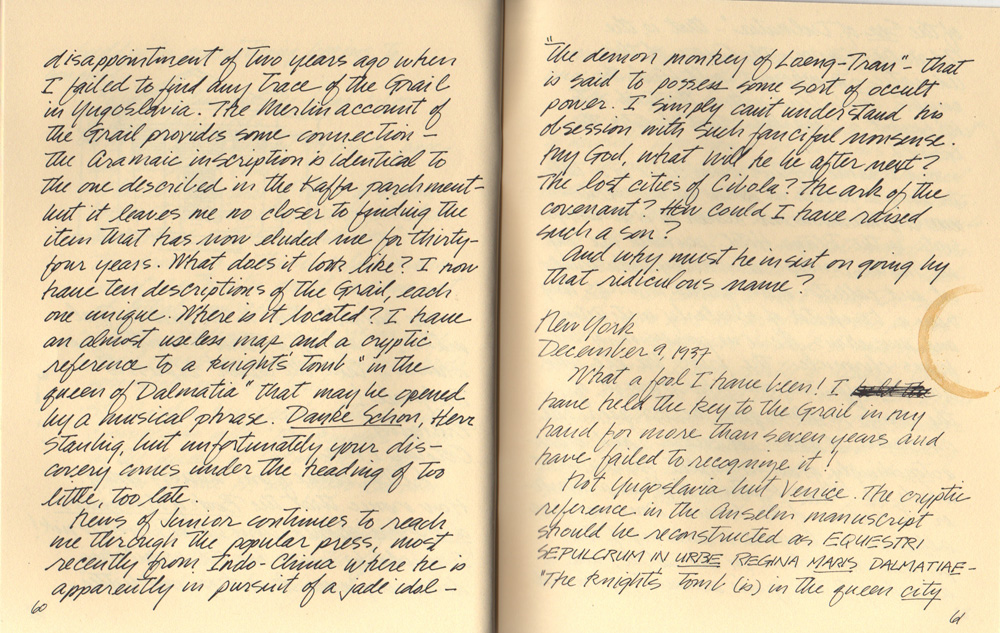 disappointment of two years ago when
I failed to find any trace of the Grail
in Yugoslavia. The Merlin account of
the Grail provides some connection –
the Aramaic inscription is identical to
the one described in the Kaffa parchment –
but it leaves me no closer to finding the
item that has now eluded me for thirty-
four years. What does it look like? I now
have ten descriptions of the Grail, each
one unique. Where is it located? I have
an almost useless map and a cryptic
reference to a knights' tomb "in the
queen of Dalmatia" that may be opened
by a musical phrase. Danke Schon, Herr
Stanhig, but unfortunately your dis-
covery comes under the heading of too
little, too late.
News of Junior continues to reach
me through the popular press, most
recently from Indo-China where he is
apparently in pursuit of a jade idol –
60
"The demon monkey of Laeng-Tran" – that
is said to possess some sort of occult
power. I simply can't understand his
obsession with such fanciful nonsense.
My God, what will he be after next?
The lost cities of Cibola? The ark of the
covenant? How could I have raised
such a son?
And why must he insist on going by
that ridiculous name?
New York
December 9, 1937
What a fool I have been! I
have held the key to the Grail in my
hand for more than seven years and
have failed to recognize it!
Not Yugoslavia but Venice. The cryptic
reference in the Anselm manuscript
should be reconstructed as EQUESTRI
SEPULCRUM IN URBE REGINA MARIS DALMATIAE –
"The knights tomb (is) in the queen city
61